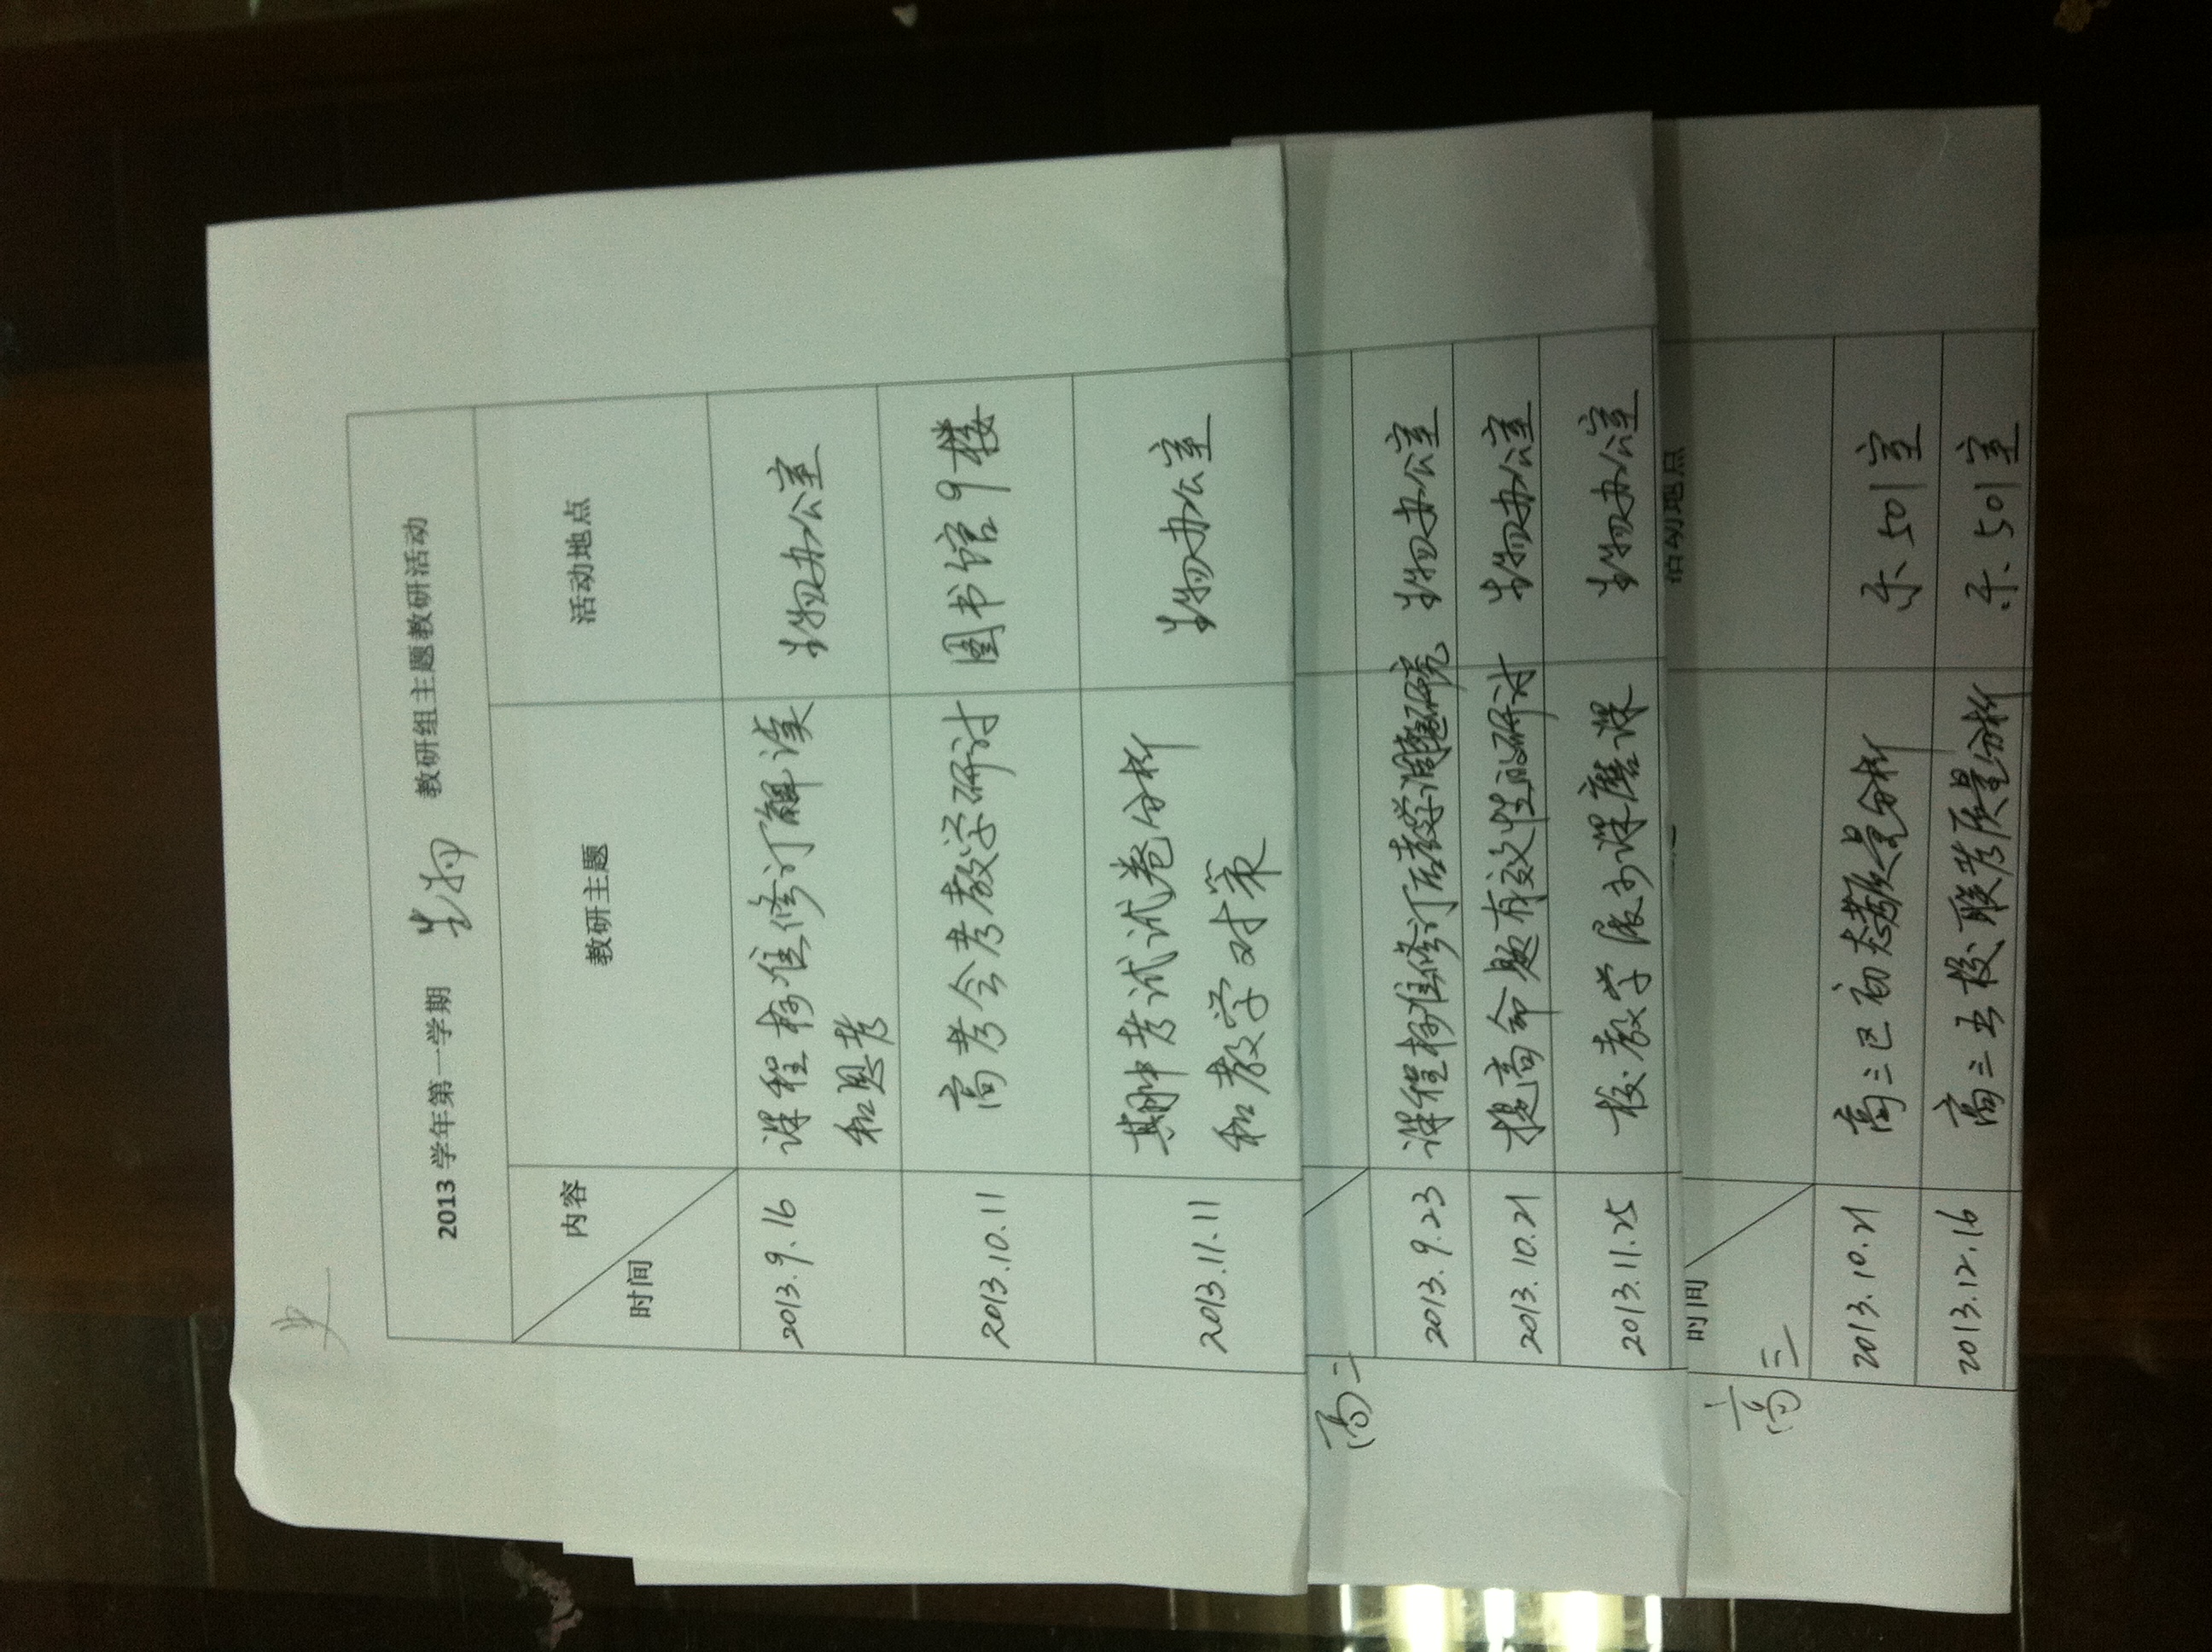 2013 学年第一学期 生物 教研组主题教研活动
内容
时间
教研主题
活动地点
2013.9.16
课程标准修订解读
和思考
生物办公室
2013.10.11
高考会考教学研讨
图书馆9楼
2013.11.11
期中考试试卷分析
和教学对策
生物办公室
高二
2013.9.23
课程标准修订后教学调整研究
生物办公室
2013.10.21
提高命题有效性的研讨
生物办公室
2013.11.25
校教学展示课磨课
生物办公室
高三
时间
活动地点
2013.10.21
高三区初考质量分析
乐.501室
2013.12.16
高三五校联考质量分析
乐.501室